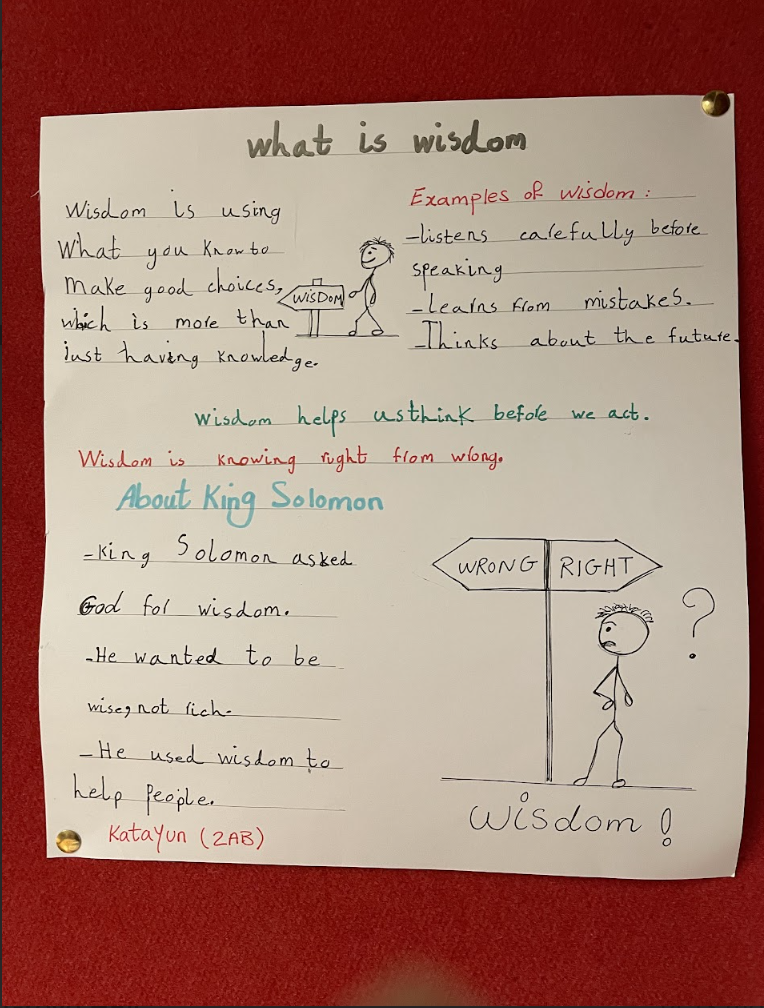 what is wisdom
Wisdom is using
what you know to
make good choices,
which is more than
just having knowledge.
WISDOM
Examples of wisdom:
-listens carefully before
speaking
-Learns from mistakes.
-Thinks about the future.
Wisdom helps us think before we act.
Wisdom is knowing right from wrong.
About King Solomon
-King Solomon asked
God for wisdom.
-He wanted to be
wise, not rich.
-He used wisdom to
help people.
Katayun (2AB)
WRONG RIGHT
?
Wisdom!